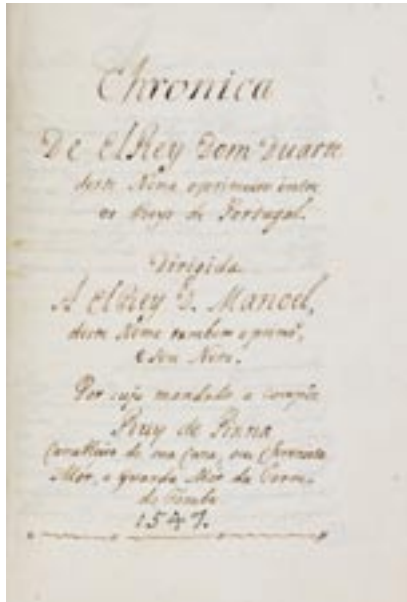 Chronica
De ElRey Dom Duarte
deste Nome o primeiro entre
os Reys de Portugal.
Dirigida
A ElRey D. Manoel,
deste Nome tambem o primº,
e seu Neto.
Por cujo mandado a compôs
Ruy de Pinna
Cavalleiro de sua Caza, seu Chronista
Mór, e Guarda Mór da Torre
do Tombo
1547.